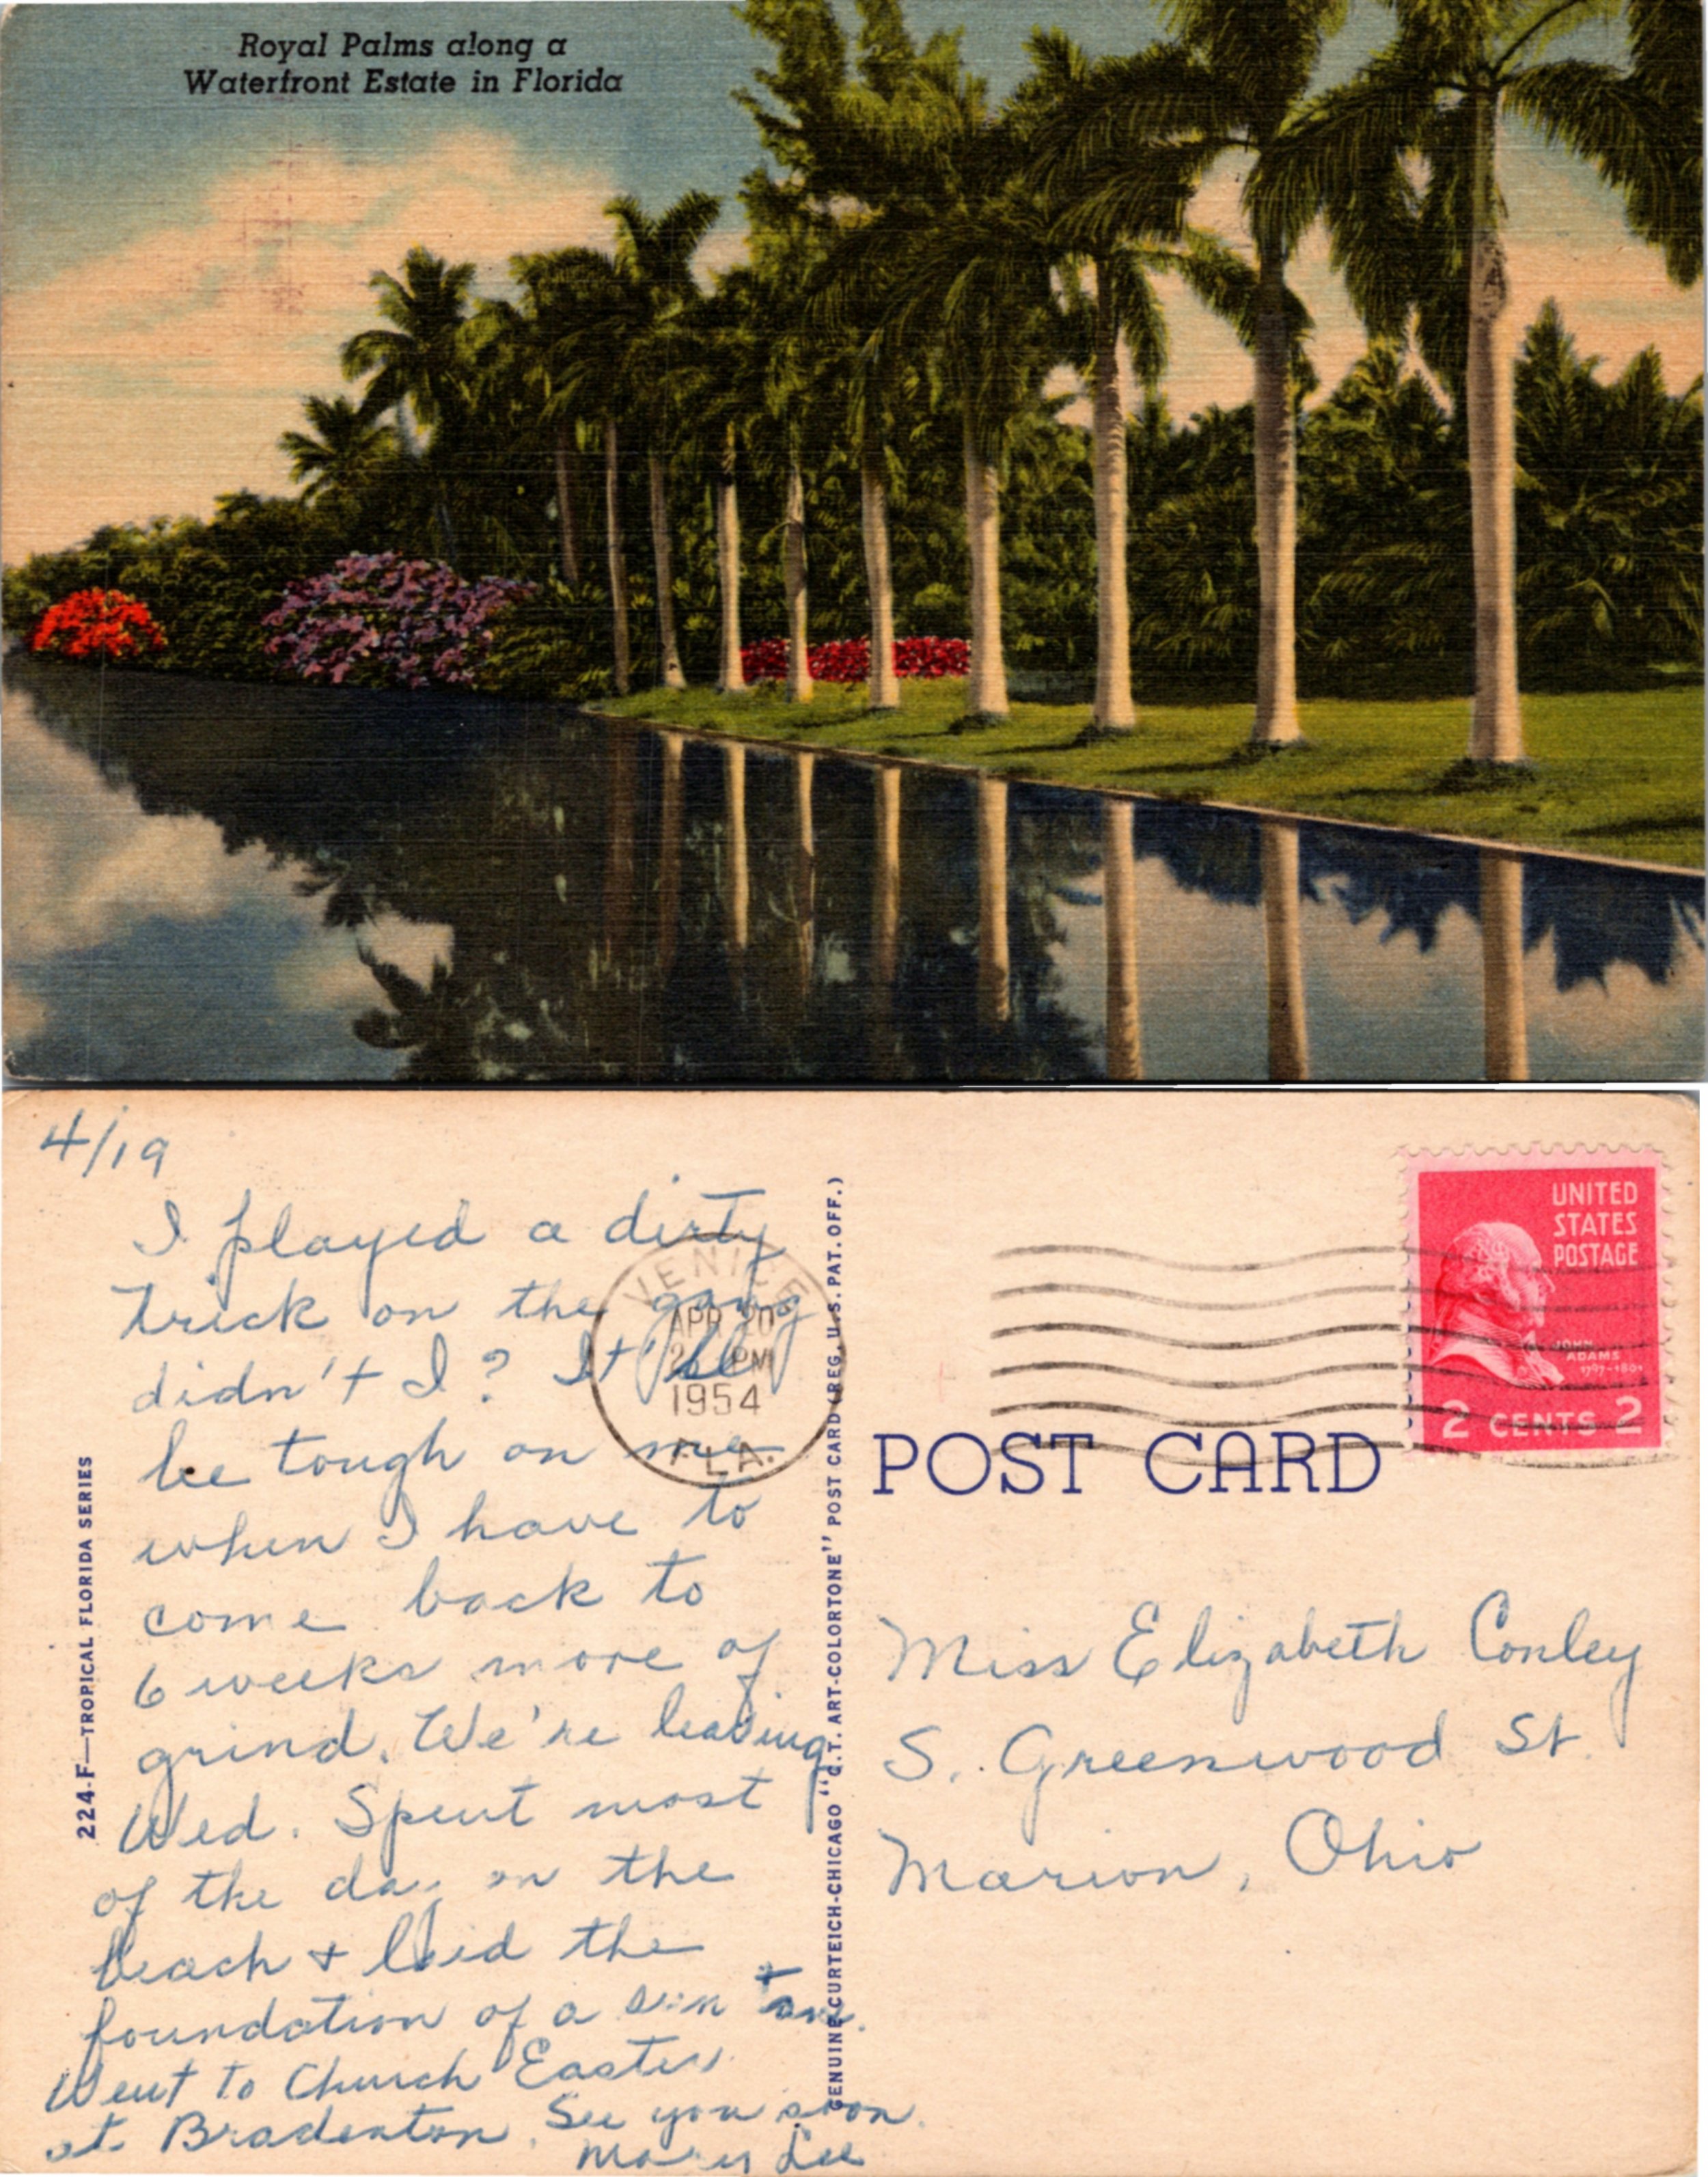 Royal Palms along a
Waterfront Estate in Florida
4/19
I played a dirty
trick on the gang
didn't I? It'll
be tough on me
when I have to
come back to
6 weeks more of
grind. We're leaving
Wed. Spent most
of the day on the
beach + laid the
foundation of a sun tan.
Went to Church Easter
at Bradenton. See you soon.
Mary Lee
224-F—TROPICAL FLORIDA SERIES
VENICE
APR 20
2 PM
1954
FLA.
GENUINE CURTEICH-CHICAGO "C.T. ART-COLORTONE" POST CARD (REG. U.S. PAT. OFF.)
UNITED
STATES
POSTAGE
JOHN
ADAMS
1797-1801
2 CENTS 2
POST CARD
Miss Elizabeth Conley
S. Greenwood St.
Marion, Ohio